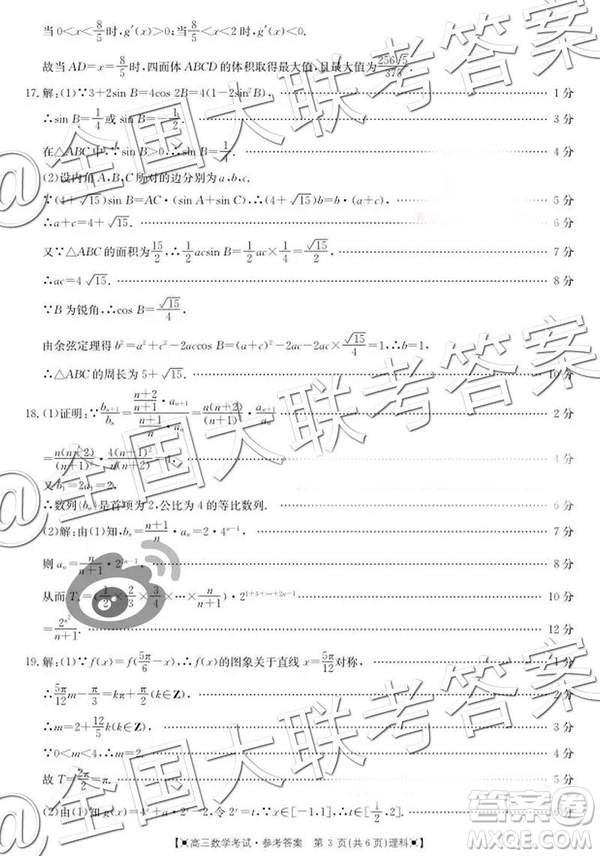 当0<x<8/5时,g′(x)>0;当8/5<x<2时,g′(x)<0.
故当AD=x=8/5时,四面体ABCD的体积取得最大值,且最大值为256√5/375.
17.解:(1)∵3+2sin B=4cos 2B=4(1-2sin²B), 1分
∴sin B=1/4或sin B=-1/2. 3分
在△ABC中,∵sin B>0,∴sin B=1/4. 4分
(2)设内角A,B,C所对的边分别为a,b,c.
∵(4+√15)sin B=AC·(sin A+sin C),∴(4+√15)b=b·(a+c), 5分
∴a+c=4+√15. 6分
又∵△ABC的面积为√15/2,∴1/2 acsin B=1/2 ac×1/4=√15/2, 7分
∴ac=4√15. 8分
∵B为锐角,∴cos B=√15/4.
由余弦定理得b²=a²+c²-2accos B=(a+c)²-2ac-2ac×√15/4=1,∴b=1,
∴△ABC的周长为5+√15. 10分
18.(1)证明:∵bₙ₊₁/bₙ=((n+2)/(n+1)·aₙ₊₁)/((n+1)/n·aₙ)=n(n+2)/(n+1)²·aₙ₊₁/aₙ 2分
=n(n+2)/(n+1)²·4(n+1)²/n(n+2)=4, 4分
又b₁=2a₁=2,
∴数列{bₙ}是首项为2,公比为4的等比数列. 6分
(2)解:由(1)知,bₙ=(n+1)/n·aₙ=2·4ⁿ⁻¹, 7分
则aₙ=n/(n+1)·2²ⁿ⁻¹, 8分
从而Tₙ=(1/2×2/3×3/4×…×n/(n+1))·2¹⁺³⁺…⁺²ⁿ⁻¹ 10分
=2^(n²)/(n+1). 12分
19.解:(1)∵f(x)=f(5π/6-x),∴f(x)的图象关于直线x=5π/12对称, 1分
∴5π/12 m-π/3=kπ+π/2(k∈Z), 2分
∴m=2+12/5 k(k∈Z). 3分
∵0<m<4,∴m=2, 4分
故T=2π/2=π. 5分
(2)由(1)知g(x)=4ˣ-2ˣ,令2ˣ=t,∵x∈[-1,1],∴t∈[1/2,2], 6分
高三数学考试·参考答案 第3页(共6页)理科
@全国大联考答案
@全国大联考答案
@全国大联考答案
答案圈